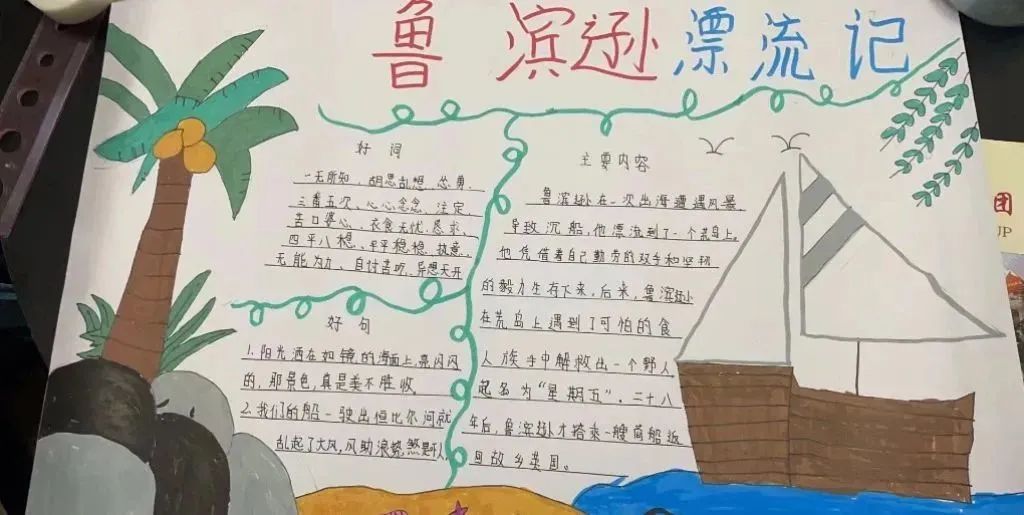 鲁滨逊漂流记
好词
一无所知、胡思乱想、怂勇、
三番五次、心心念念、注定、
苦口婆心、衣食无忧、恳求、
四平八稳、平平稳稳、执意、
无能为力、自讨苦吃、异想天开
好句
1.阳光洒在如镜的海面上,亮闪闪
的,那景色,真是美不胜收。
2.我们的船一驶出恒比尔河就
乱起了大风,风助浪势,煞是吓人
主要内容
鲁滨逊在一次出海遭遇风暴,
导致沉船,他漂流到了一个荒岛上。
他凭借着自己勤劳的双手和坚韧
的毅力生存下来,后来,鲁滨逊
在荒岛上遇到了可怕的食
人族手中解救出一个野人,
起名为“星期五”。二十八
年后,鲁滨逊才搭乘一艘商船返
回故乡英国。
团
UP